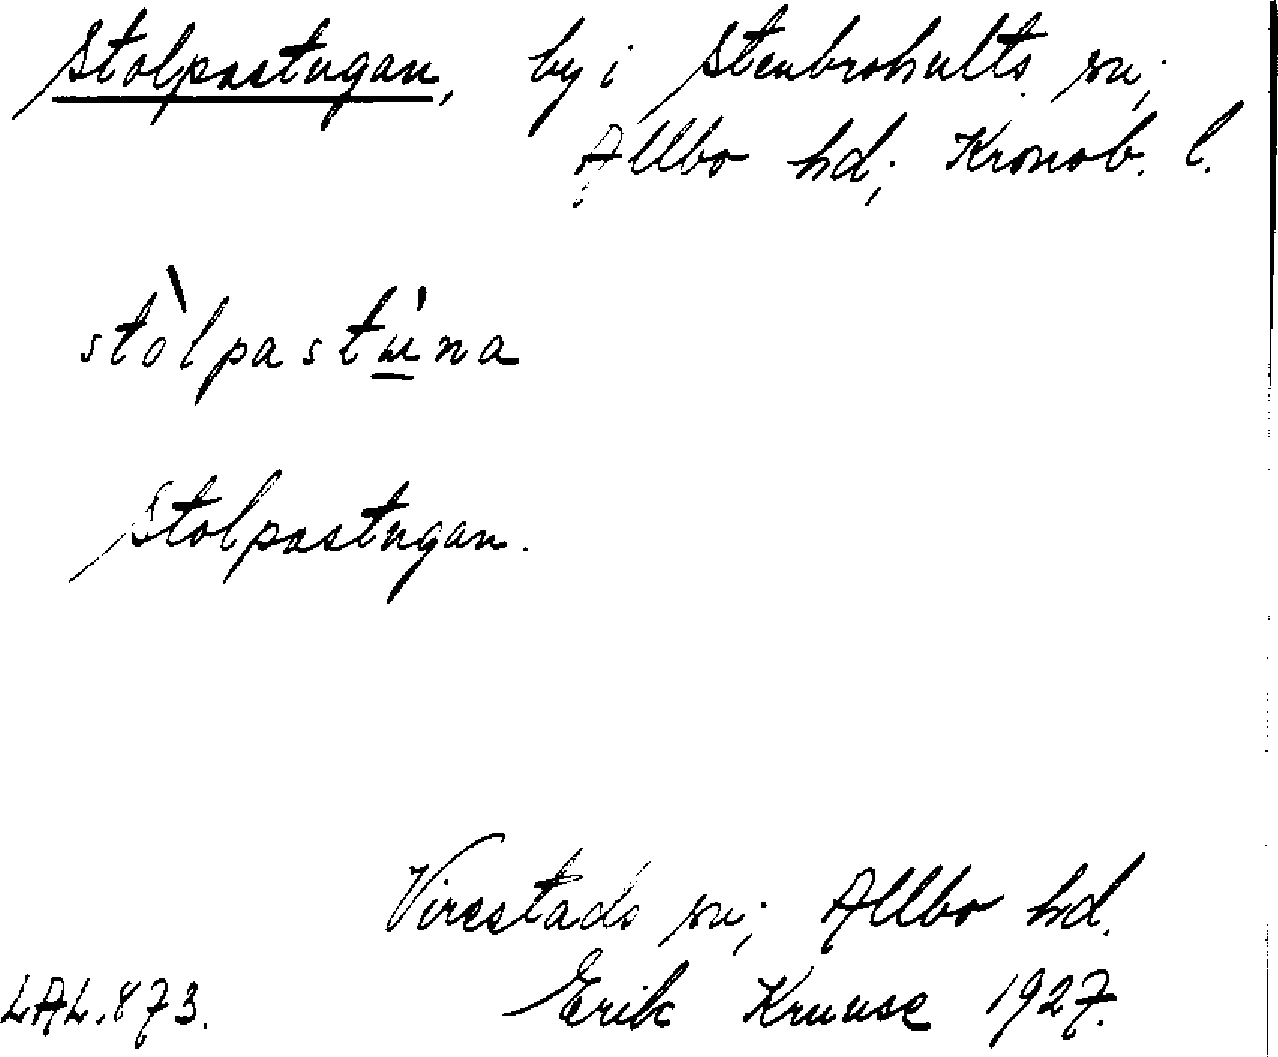 Stolpastugan, by i Stenbrohults sn;
Allbo hd; Kronob. l.
stòlpastúna
Stolpastugan.
Virestads sn; Allbo hd.
LAL.873. Erik Kruuse 1927.